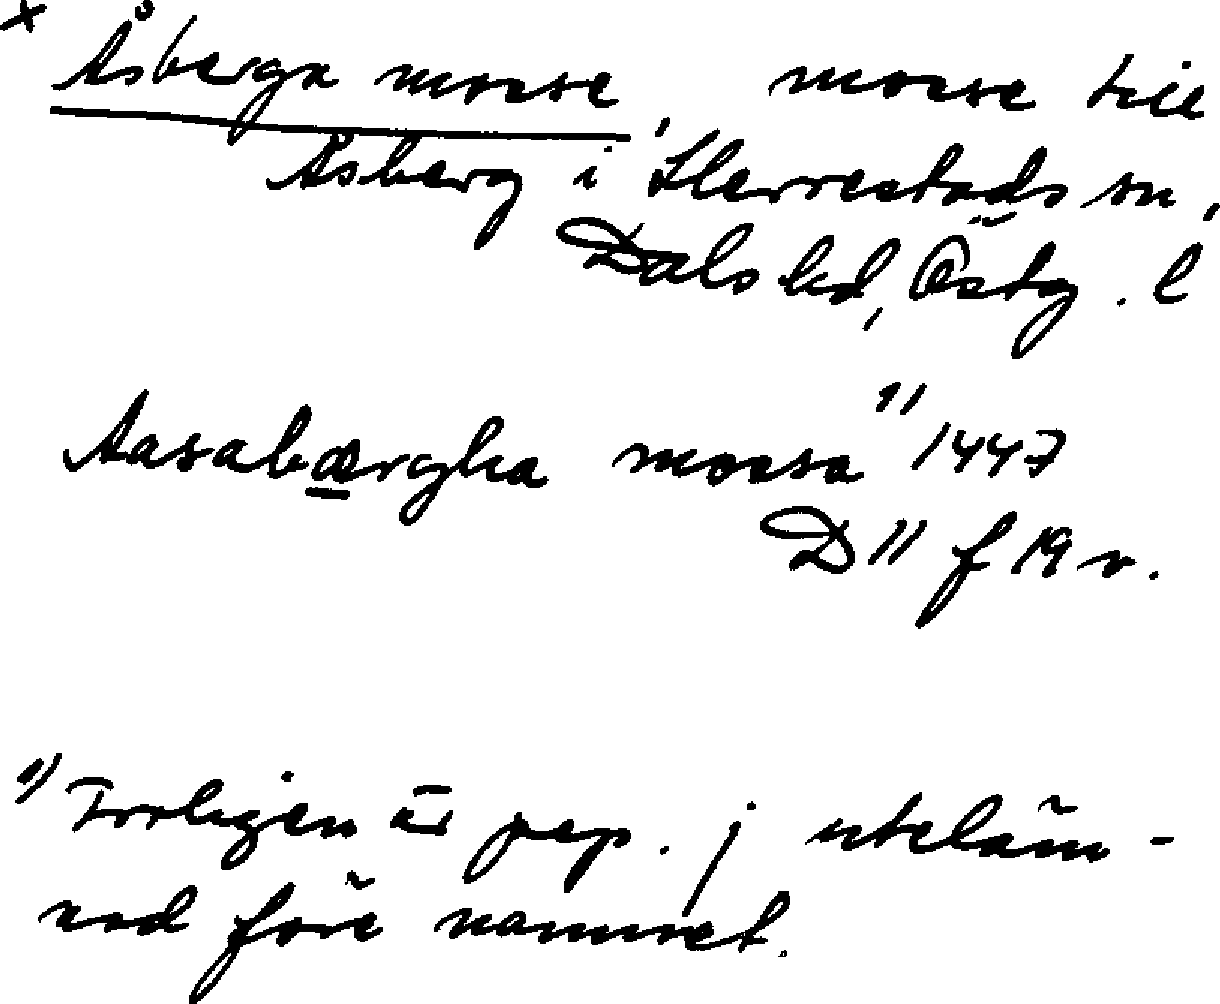 x Åsberga mosse, mosse till
Åsberg i Herrestads sn,
Dals hd, Östg. l
Aasabærgha mossa 1) 1447
D 11 f 19 v.
1) Troligen är prep. j uteläm-
nad före namnet.